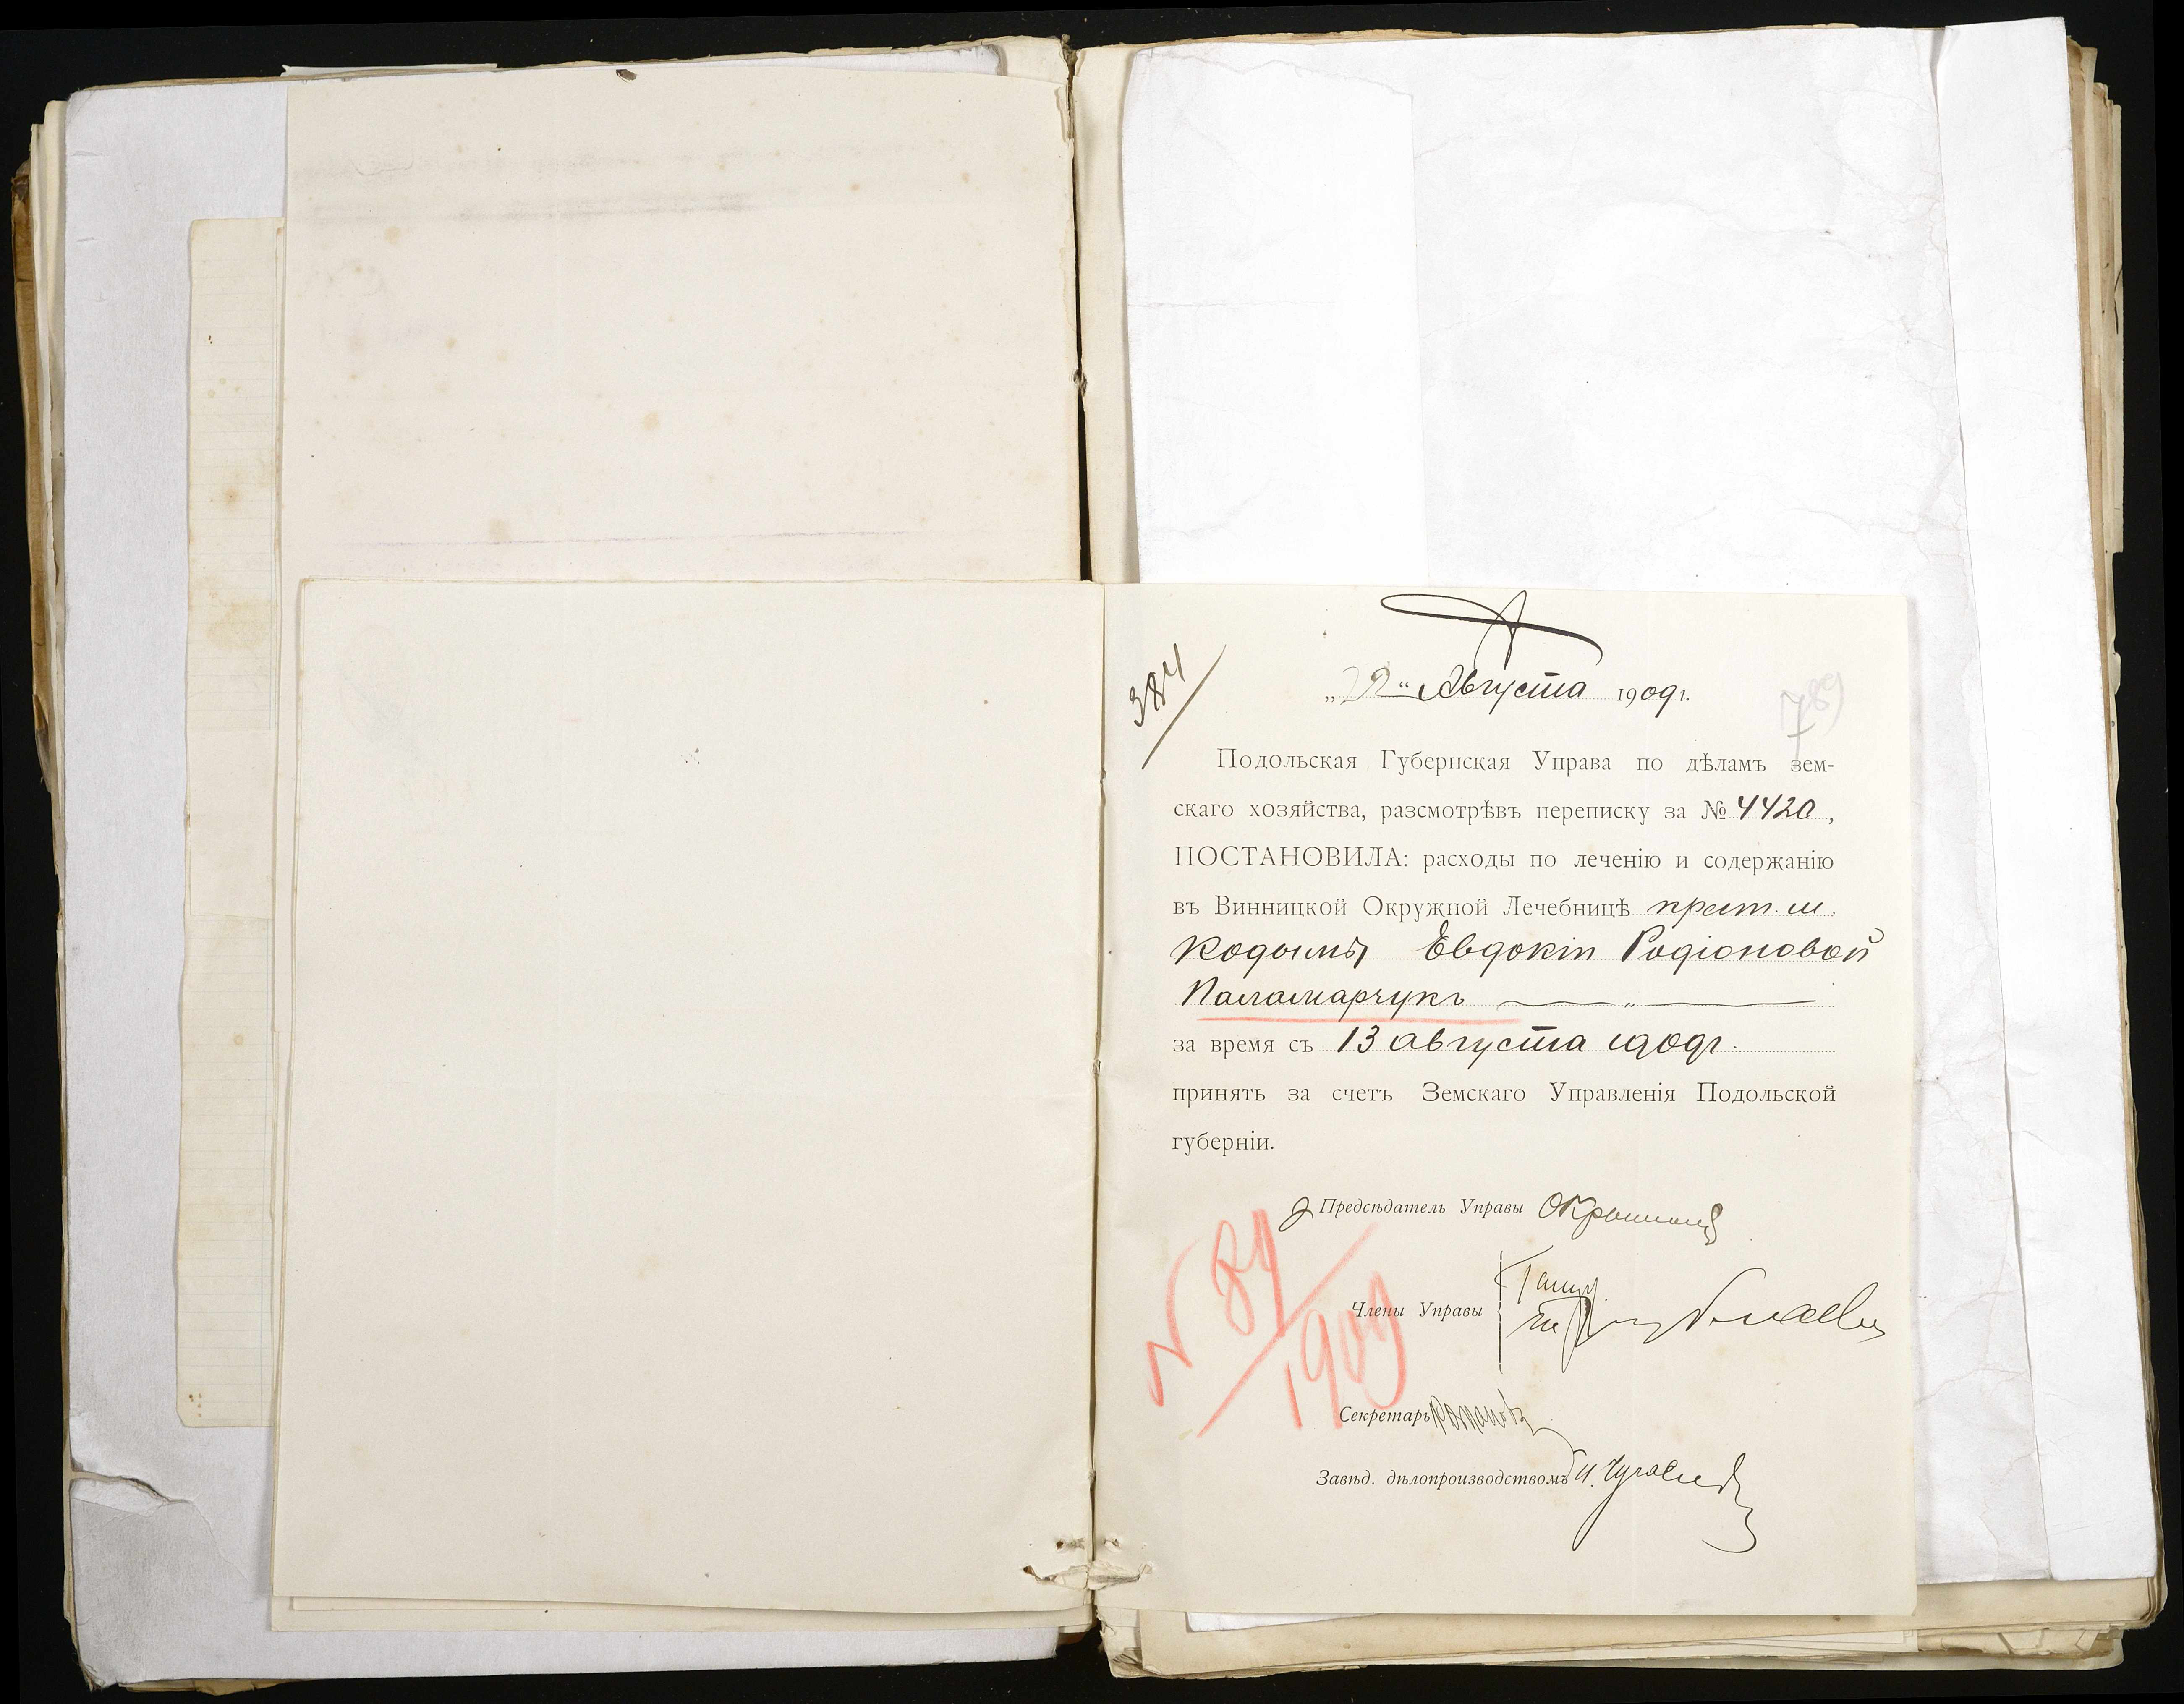 384
„22“ Августа 1909г.
789
Подольская Губернская Управа по дѣламъ зем-
скаго хозяйства, разсмотрѣвъ переписку за № 4420,
ПОСТАНОВИЛА: расходы по леченію и содержанію
въ Винницкой Окружной Лечебницѣ крест. м.
Кодымы Евдокіи Родіоновой
Паламарчукъ — „ —
за время съ 13 августа 1909г.
принять за счетъ Земскаго Управленія Подольской
губерніи.
Предсѣдатель Управы
Члены Управы
N 84
1909
Секретарь
Завѣд. дѣлопроизводствомъ